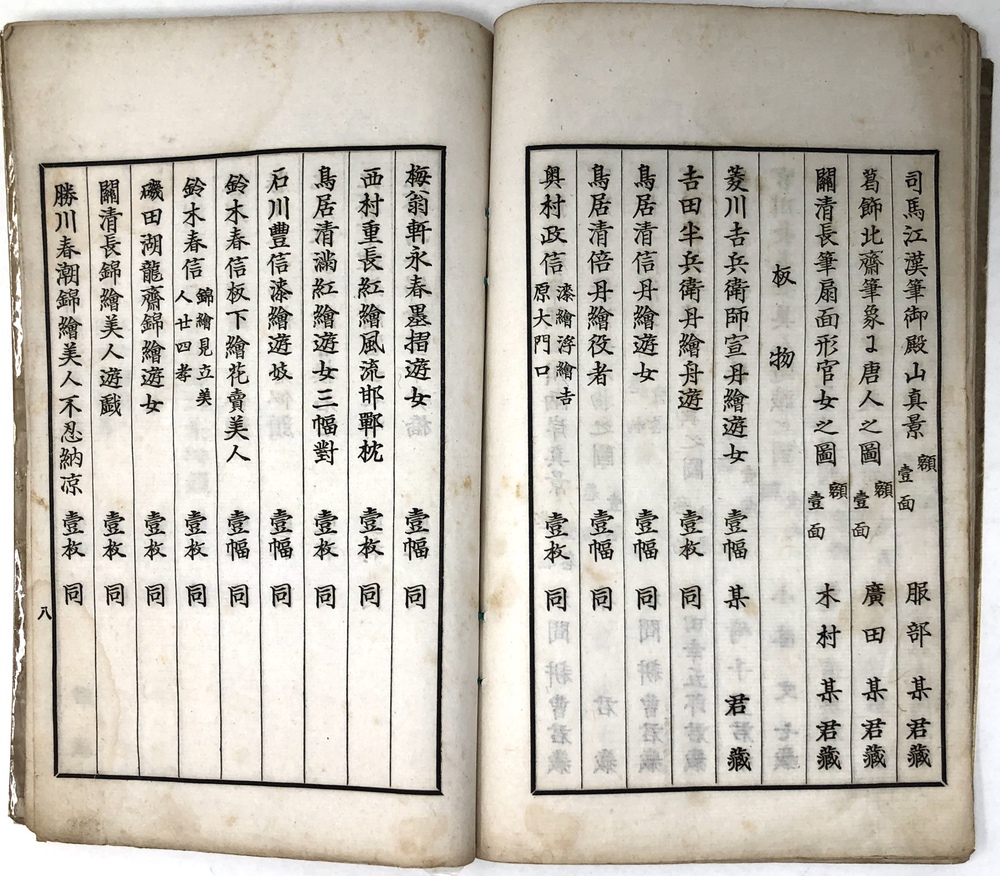 司馬江漢筆御殿山真景 額壹面 服部某君藏
葛飾北齋筆象ニ唐人之圖 額壹面 廣田某君藏
關清長筆扇面形官女之圖 額壹面 木村某君藏
板物
菱川吉兵衛師宣丹繪遊女 壹幅 某君藏
吉田半兵衛丹繪舟遊 壹枚 同
鳥居清信丹繪遊女 壹幅 同
鳥居清倍丹繪役者 壹幅 同
奥村政信 漆繪浮繪吉原大門口 壹枚 同
梅翁軒永春墨摺遊女 壹幅 同
西村重長紅繪風流邯鄲枕 壹枚 同
鳥居清滿紅繪遊女三幅對 壹幅 同
石川豊信漆繪遊妓 壹幅 同
鈴木春信板下繪花賣美人 壹幅 同
鈴木春信 錦繪見立美人廿四孝 壹枚 同
礒田湖龍齋錦繪遊女 壹枚 同
關清長錦繪美人遊戲 壹枚 同
勝川春潮錦繪美人不忍納凉 壹枚 同
八